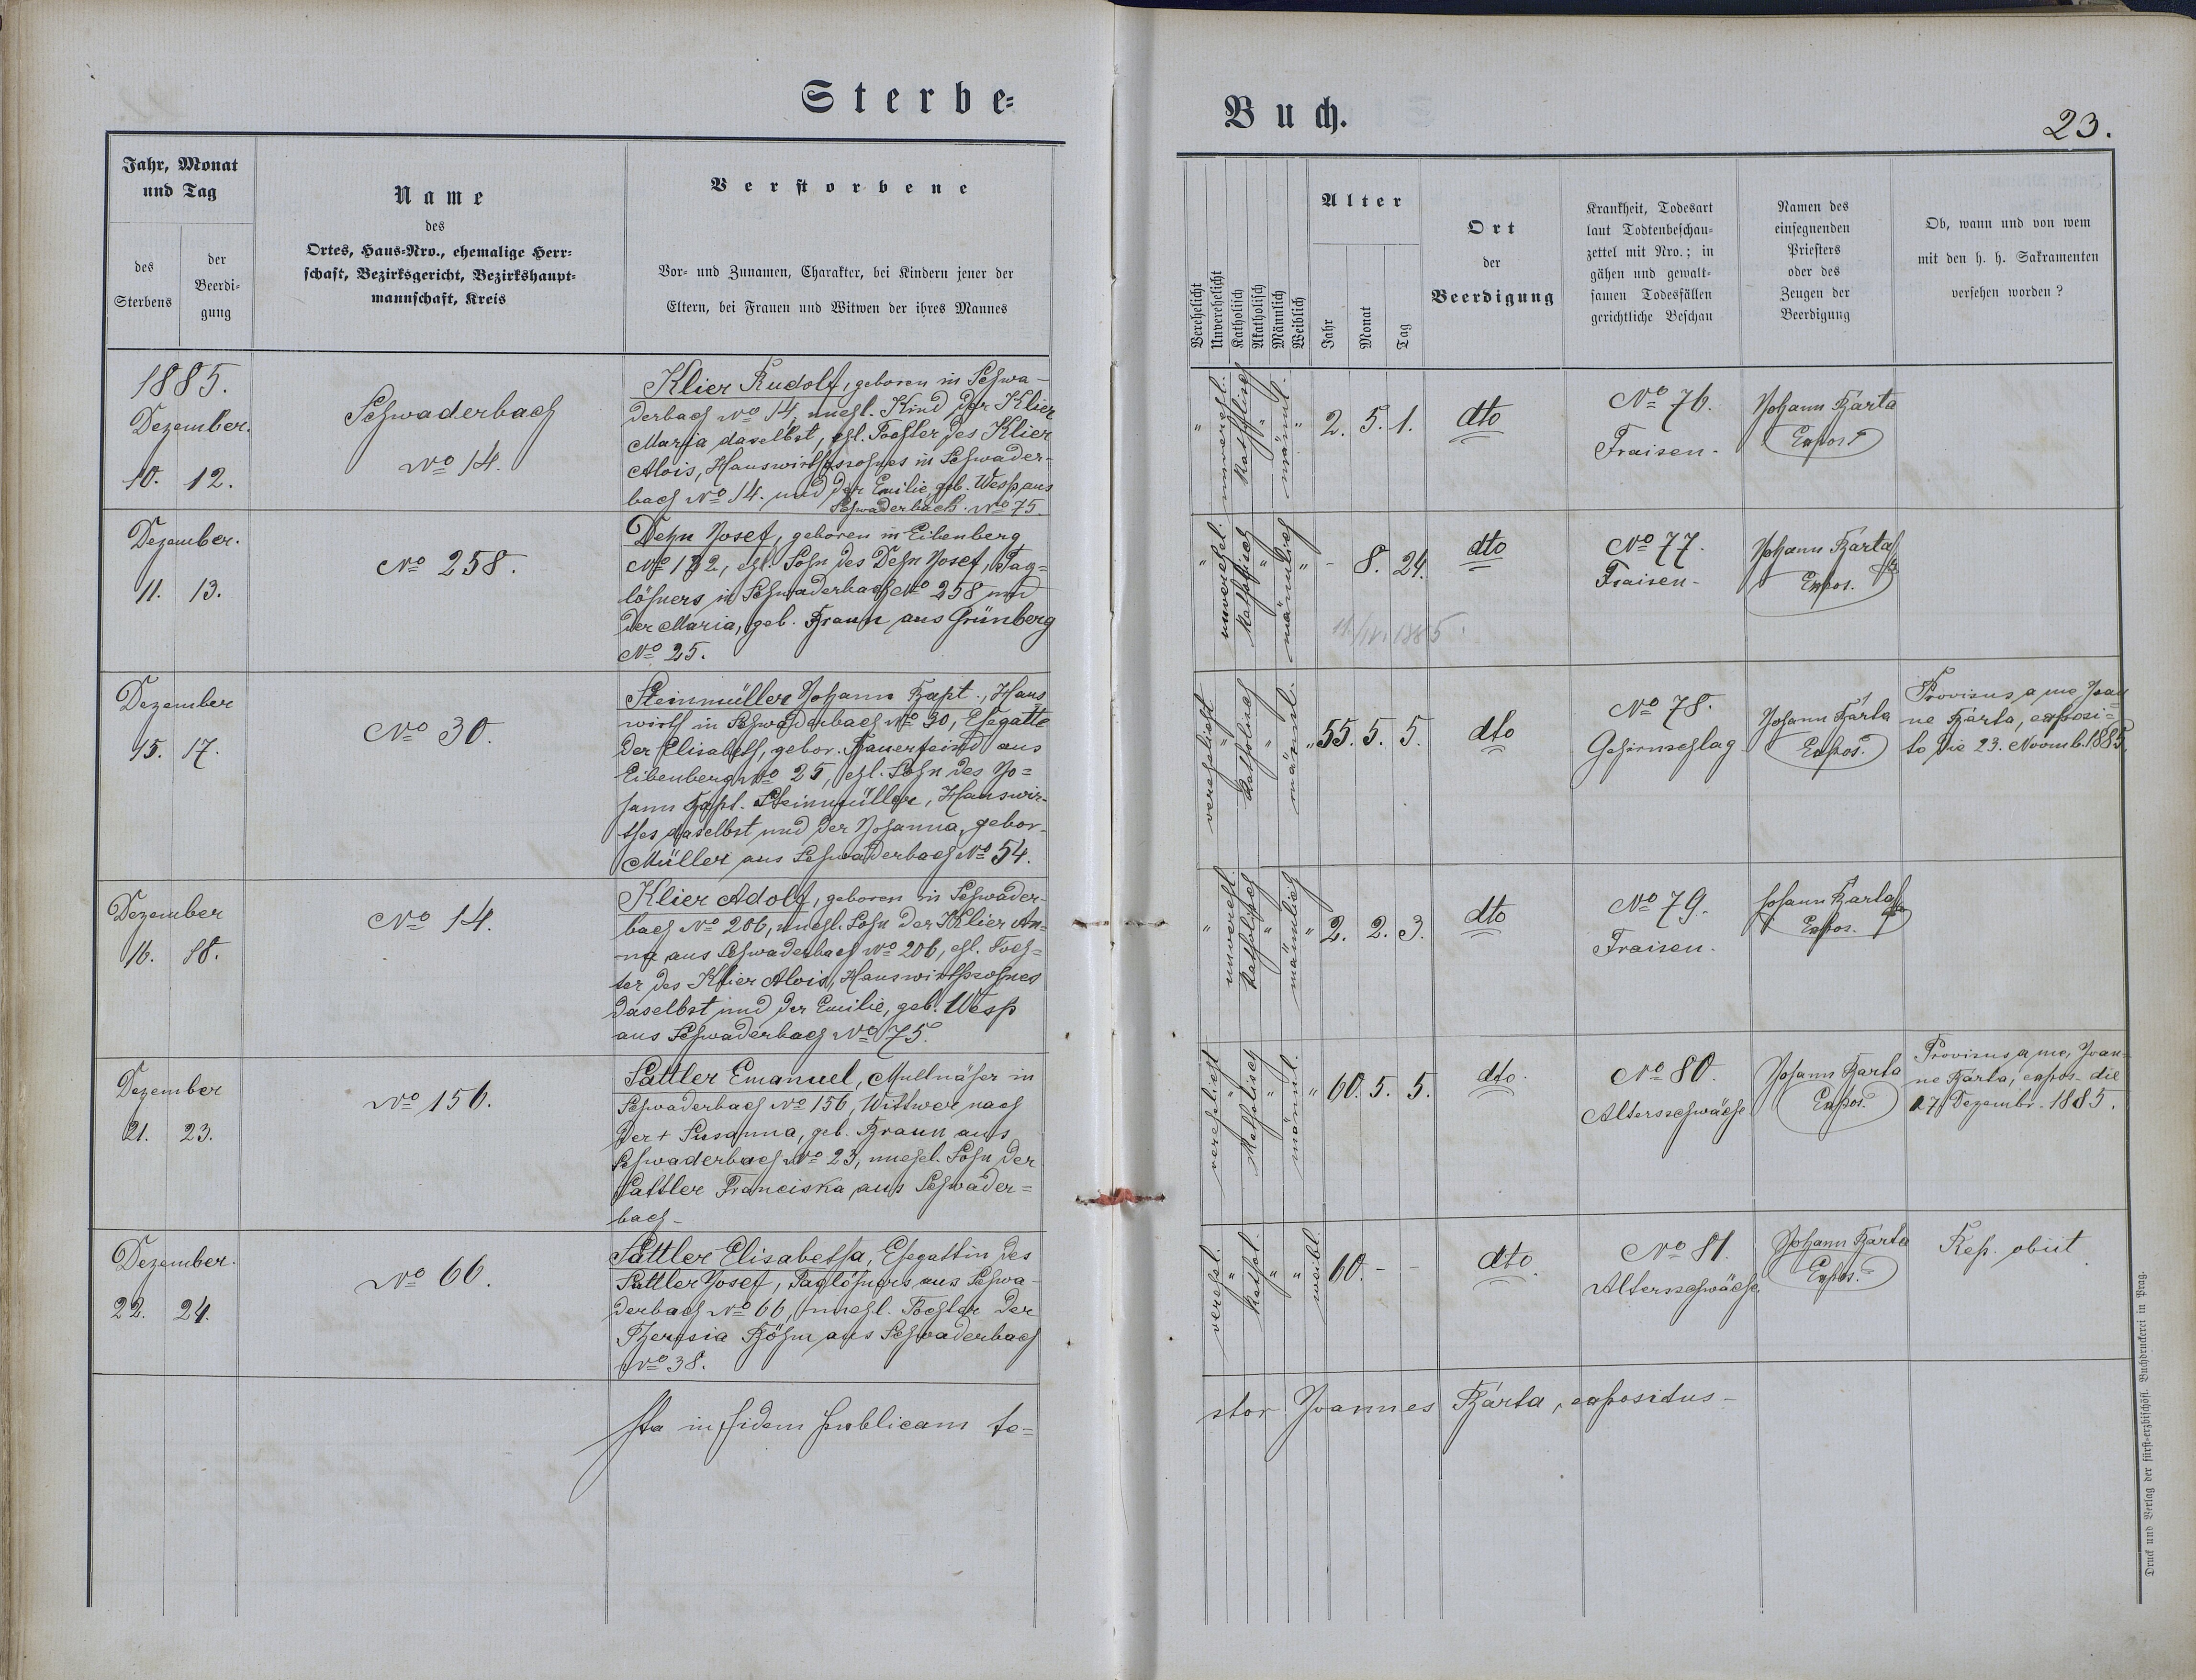 Sterbe=
Buch.
23.
Jahr, Monat
und Tag
des
Sterbens
der
Beerdi-
gung
Name
des
Ortes, Haus-Nro., ehemalige Herr-
schaft, Bezirksgericht, Bezirkshaupt-
mannschaft, Kreis
Verstorbene
Vor- und Zunamen, Charakter, bei Kindern jener der
Eltern, bei Frauen und Witwen der ihres Mannes
Verehelicht
Unverehelicht
Katholisch
Akatholisch
Männlich
Weiblich
Alter
Jahr
Monat
Tag
Ort
der
Beerdigung
Krankheit, Todesart
laut Todtenbeschau-
zettel mit Nro.; in
gähen und gewalt-
samen Todesfällen
gerichtliche Beschau
Namen des
einsegnenden
Priesters
oder des
Zeugen der
Beerdigung
Ob, wann und von wem
mit den h. h. Sakramenten
versehen worden?
1885.
Dezember.
10. 12.
Schwaderbach
No 14.
Klier Rudolf, geboren in Schwa-
derbach No 14, unehl. Kind der Klier
Maria daselbst, ehl. Tochter des Klier
Alois, Hauswirthssohnes in Schwader-
bach No 14. und der Emilie, geb. Wesp aus
Schwaderbach No 75.
" unverehl. katholisch " männl. "
2. 5. 1.
dto
No 76.
Fraisen.
Johann Bárta
Expost
Dezember.
11. 13.
No 258.
Dehn Josef, geboren in Eibenberg
No 182, ehl. Sohn des Dehn Josef, Tag=
löhners in Schwaderbach No 258 und
der Maria, geb. Braun aus Grünberg
No 25.
" unverehel. katholisch " männlich "
- 8. 24.
dto
No 77.
Fraisen-
Johann Bárta
Expos.
Dezember
15. 17.
No 30.
Steinmüller Johann Bapt., Haus
wirth in Schwaderbach No 30, Ehegatte
der Elisabeth, gebor. Bauerfeind aus
Eibenberg No 25, ehl. Sohn des Jo=
hann Bapt. Steinmüller, Hauswir-
thes daselbst und der Johanna, gebor-
Müller aus Schwaderbach No 54.
verehelicht " katholisch " männl. "
55. 5. 5.
dto
No 78.
Gehirnschlag
Johann Bárta
Expos.
Provisus a me Joan
ne Bárta, exposi=
to die 23. Novemb. 1885
Dezember
16. 18.
No 14.
Klier Adolf, geboren in Schwader-
bach No 206, unehl. Sohn der Klier An-
na aus Schwaderbach No 206, ehl. Toch=
ter des Klier Alois, Hauswirthssohnes
daselbst und der Emilie, geb. Wesp
aus Schwaderbach No 75.
" unverehl. katholisch " männlich "
2. 2. 3.
dto
No 79.
Fraisen.
Johann Bárta
Expos.
Dezember
21. 23.
No 156.
Sattler Emanuel, Mullnäher in
Schwaderbach No 156, Wittwer nach
der + Susanna, geb. Braun aus
Schwaderbach No 23, unehel. Sohn der
Sattler Franciska aus Schwader=
bach-
verehelicht " katholisch " männl. "
60. 5. 5.
dto.
No 80.
Altersschwäche
Johann Bárta
Expos.
Provisus a me, Joan-
ne Bárta, expos. die
17 Dezembr. 1885.
Dezember.
22. 24.
No 66.
Sattler Elisabetha, Ehegattin des
Sattler Josef, Taglöhners aus Schwa-
derbach No 66, unehl. Tochter der
Theresia Böhm aus Schwaderbach
No 38.
verehel. " kathol. " " weibl.
60. - -
dto
No 81.
Altersschwäche.
Johann Bárta
Expos.
Rep. obiit
Ita in fidem publicam te=
stor Joannes Bárta, expositus-
Druck und Verlag der fürst-erzbischöfl. Buchdruckerei in Prag.